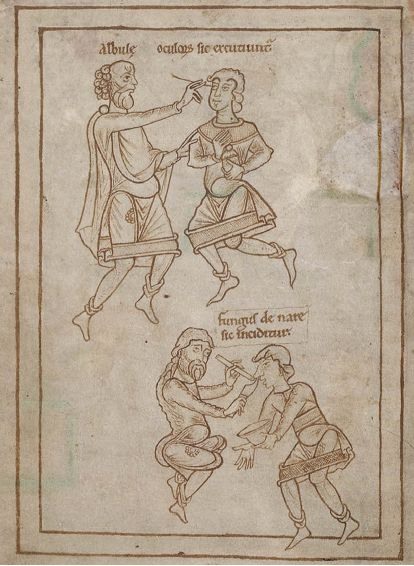 Albulę oculoꝝ sic excutiunt᷑
fungus de nare
sic inciditur.